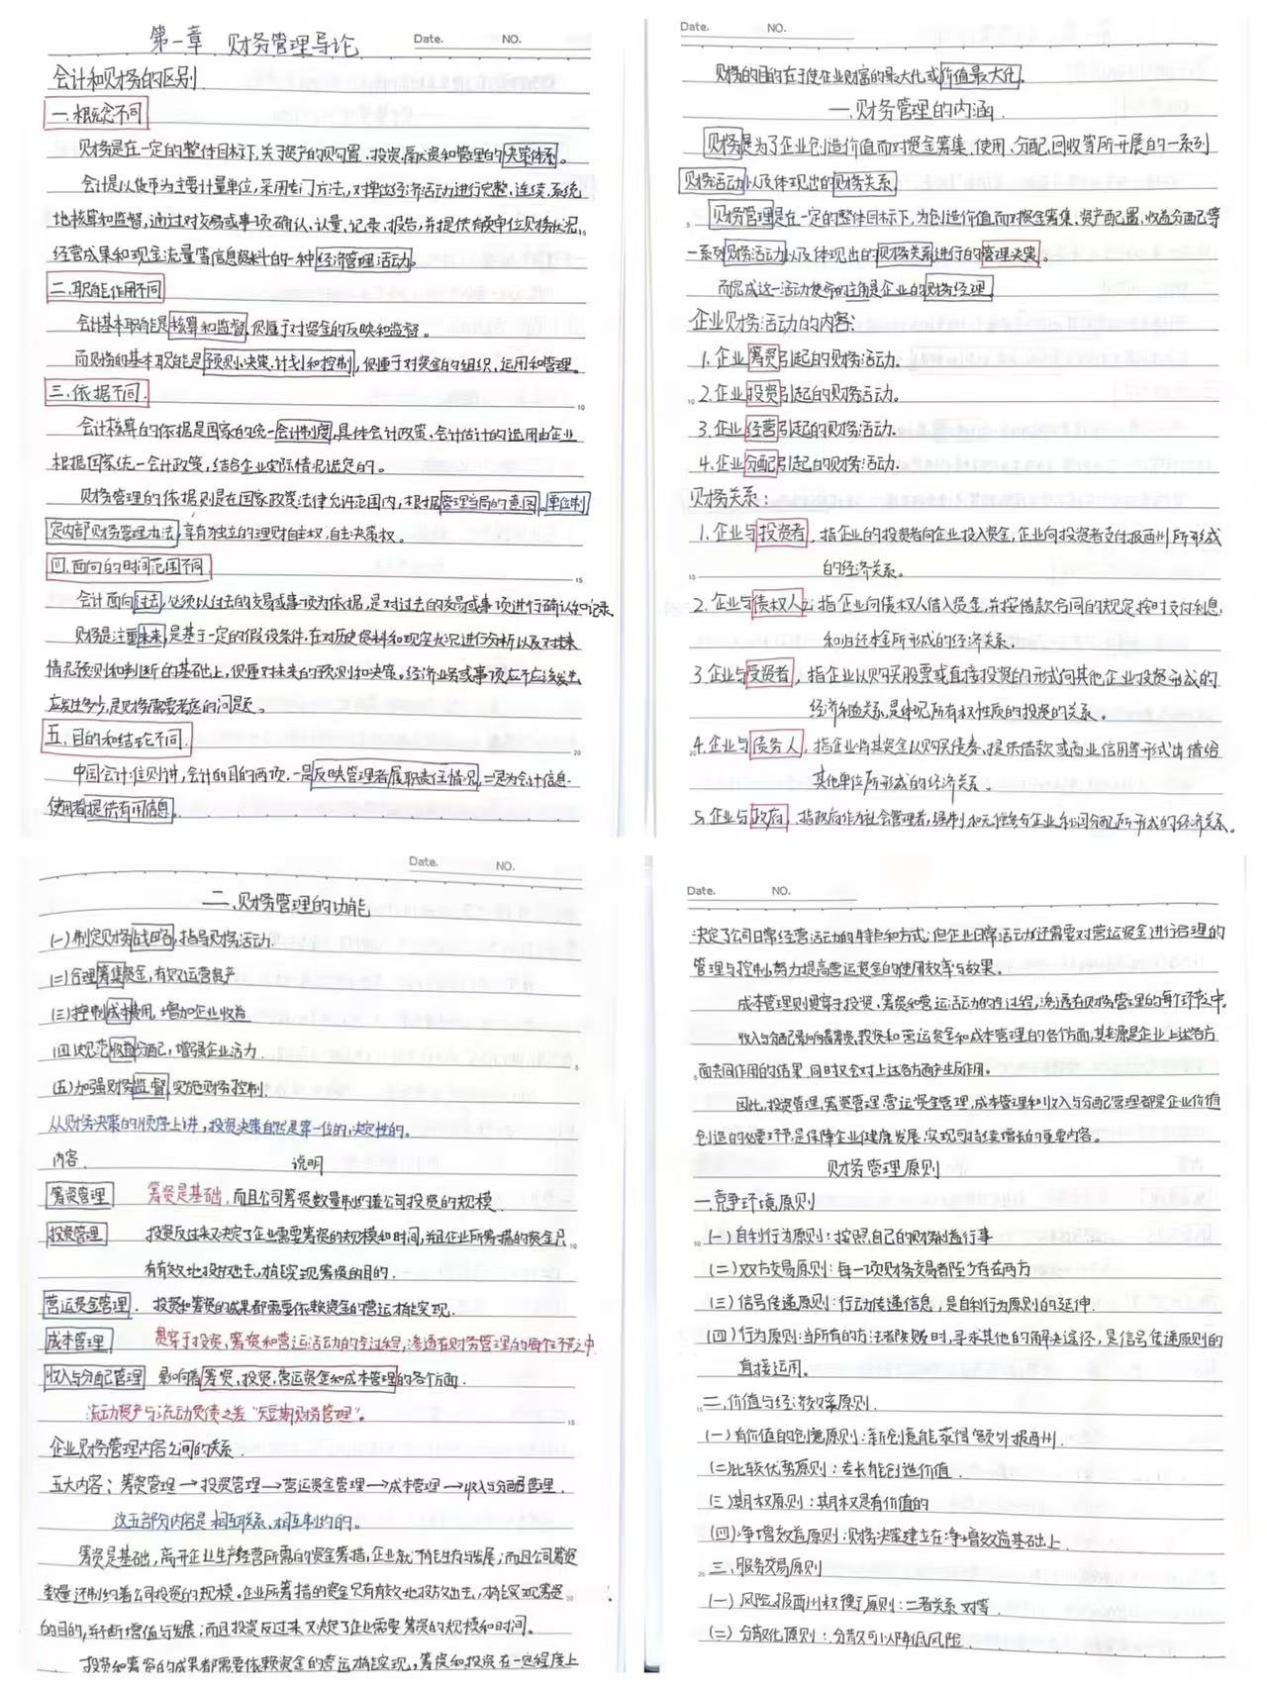 第一章 财务管理导论
Date. NO.
会计和财务的区别
一.概念不同
财务是在一定的整体目标下,关于资产的购置、投资,融资和管理的决策体系。
会计是以货币为主要计量单位,采用专门方法,对单位经济活动进行完整、连续、系统
地核算和监督,通过对交易或事项确认、计量、记录、报告,并提供有关单位财务状况、
经营成果和现金流量等信息资料的一种经济管理活动。
二.职能作用不同
会计基本职能是核算和监督,侧重于对资金的反映和监督。
而财务的基本职能是预测、决策、计划和控制,侧重于对资金的组织、运用和管理。
三.依据不同.
10
会计核算的依据是国家的统一会计制度,具体会计政策、会计估计的选用由企业
根据国家统一会计政策,结合企业实际情况选定的。
财务管理的依据则是在国家政策法律允许范围内,根据管理当局的意图,单位制
定内部财务管理办法,享有独立的理财自主权,自主决策权。
四.面向的时间范围不同
15
会计面向过去,必须以过去的交易或事项为依据,是对过去的交易或事项进行确认和记录.
财务是注重未来,是基于一定的假设条件,在对历史资料和现实状况进行分析以及对未来
情况预测和判断的基础上,侧重对未来的预测和决策。经济业务或事项应不应该发生
应发生多少,是财务需要考虑的问题。
五.目的和结论不同.
20
中国会计准则讲,会计的目的两项,一是反映管理者履职责任情况,二是为会计信息.
使用者提供有用信息。
Date. NO.
财务的目的在于使企业财富的最大化或价值最大化。
一.财务管理的内涵.
财务是为了企业创造价值而对资金筹集、使用、分配、回收等所开展的一系列
财务活动以及体现出的财务关系.
5 财务管理是在一定的整体目标下,为创造价值而对资金筹集、资产配置、收益分配等
一系列财务活动以及体现出的财务关系进行的管理决策。
而完成这一活动使命的主角是企业的财务经理.
企业财务活动的内容:
1.企业筹资引起的财务活动.
10 2.企业投资引起的财务活动。
3.企业经营引起的财务活动.
4.企业分配引起的财务活动.
财务关系:
1.企业与投资者,指企业的投资者向企业投入资金,企业向投资者支付报酬所形成
15 的经济关系。
2.企业与债权人:指企业向债权人借入资金,并按借款合同的规定按时支付利息,
和归还本金所形成的经济关系.
3.企业与受资者,指企业以购买股票或直接投资的形式向其他企业投资形成的
经济利益关系,是体现所有权性质的投资的关系。
20 4.企业与债务人,指企业将其资金以购买债券、提供借款或商业信用等形式出借给
其他单位所形成的经济关系。
5.企业与政府,指政府作为社会管理者,强制和无偿参与企业利润分配所形成的经济关系。
Date. NO.
二.财务管理的功能
(一)制定财务战略,指导财务活动.
(二)合理筹集资金,有效运营资产
(三)控制成本费用,增加企业收益
(四)规范收益分配,增强企业活力.
5
(五)加强财务监督,实施财务控制.
从财务决策的顺序上讲,投资决策自然是第一位的,决定性的。
内容. 说明
筹资管理 筹资是基础,而且公司筹资数量制约着公司投资的规模.
投资管理 投资反过来又决定了企业需要筹资的规模和时间,并且企业所筹措的资金只
10
有有效地投放出去,才能实现筹资的目的.
营运资金管理. 投资和筹资的成果都需要依赖资金的营运才能实现.
成本管理 贯穿于投资,筹资和营运活动的全过程,渗透在财务管理的每个环节之中.
收入与分配管理 影响着筹资,投资,营运资金和成本管理的各个方面.
流动资产与流动负债之差"短期财务管理"。
15
企业财务管理内容之间的关系.
五大内容:筹资管理→投资管理→营运资金管理→成本管理→收入与分配管理.
这五部分内容是相互联系、相互制约的。
筹资是基础,离开企业生产经营所需的资金筹措,企业就不能生存与发展;而且公司筹资
数量还制约着公司投资的规模。企业所筹措的资金只有有效地投放出去,才能实现筹资
20
的目的,并不断增值与发展;而且投资反过来又决定了企业需要筹资的规模和时间。
投资和筹资的成果都需要依赖资金的营运才能实现,筹资和投资在一定程度上
Date. NO.
决定了公司日常经营活动的特点和方式;但企业日常活动还需要对营运资金进行合理的
管理与控制,努力提高营运资金的使用效率与效果。
成本管理则贯穿于投资,筹资和营运活动的全过程,渗透在财务管理的每个环节之中.
收入与分配影响着筹资,投资和营运资金和成本管理的各个方面,其来源是企业上述各方
5 面共同作用的结果,同时又会对上述各方面产生反作用。
因此,投资管理,筹资管理,营运资金管理,成本管理和收入与分配管理都是企业价值
创造的必要环节,是保障企业健康发展、实现可持续增长的重要内容。
财务管理原则
一.竞争环境原则
10 (一)自利行为原则:按照自己的财务利益行事
(二)双方交易原则:每一项财务交易都至少存在两方
(三)信号传递原则:行动传递信息,是自利行为原则的延伸.
(四)行为原则:当所有的方法都失败时,寻求其他的解决途径,是信号传递原则的
直接运用。
15 二.价值与经济效率原则.
(一)有价值的创意原则:新创意能获得额外报酬.
(二)比较优势原则:专长能创造价值.
(三)期权原则:期权是有价值的
(四)净增效益原则:财务决策建立在净增效益基础上.
20 三.财务交易原则
(一)风险报酬权衡原则:二者关系对等.
(二)分散化原则:分散可以降低风险.